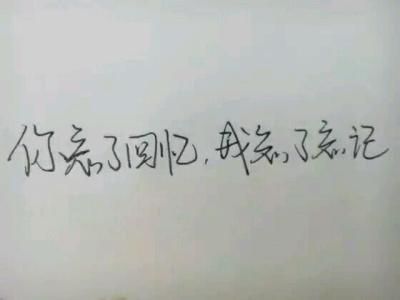 你忘了回忆,我忘了忘记